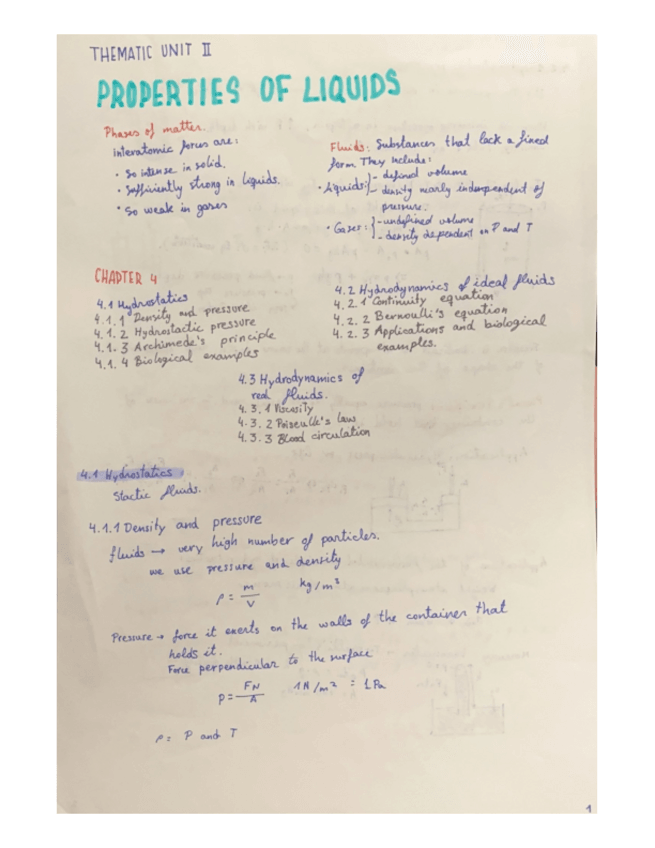 THEMATIC UNIT II
PROPERTIES OF LIQUIDS
Phases of matter.
Interatomic forces are:
• So intense in solid.
• Sufficiently strong in liquids.
• So weak in gases
Fluids: Substances that lack a fined
form. They include:
• Liquids: - defined volume
- density nearly independent of
pressure.
• Gases: - undefined volume
- density dependent on P and T
CHAPTER 4
4.1 Hydrostatics
4.1.1 Density and pressure
4.1.2 Hydrostactic pressure
4.1.3 Archimede's principle
4.1.4 Biological examples
4.2 Hydrodynamics of ideal fluids
4.2.1 Continuity equation
4.2.2 Bernoulli's equation
4.2.3 Applications and biological
examples.
4.3 Hydrodynamics of
real fluids.
4.3.1 Viscosity
4.3.2 Poiseulle's law
4.3.3 Blood circulation
4.1 Hydrostatics
Stactic fluids.
4.1.1 Density and pressure
fluids → very high number of particles.
we use pressure and density
ρ = m/V kg/m³
Pressure → force it exerts on the walls of the container that
holds it.
Force perpendicular to the surface
p = FN/A 1N/m² = 1Pa
ρ = P and T
1